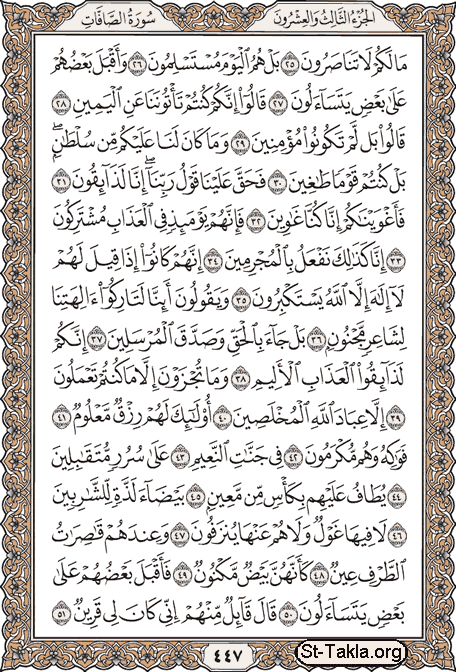 الجُزْءُ الثَّالِثُ وَالعِشْرُونَ سُورَةُ الصَّافَّاتِ
مَا لَكُمْ لَا تَنَاصَرُونَ ٢٥ بَلْ هُمُ ٱلْيَوْمَ مُسْتَسْلِمُونَ ٢٦ وَأَقْبَلَ بَعْضُهُمْ
عَلَىٰ بَعْضٍ يَتَسَآءَلُونَ ٢٧ قَالُوٓا۟ إِنَّكُمْ كُنتُمْ تَأْتُونَنَا عَنِ ٱلْيَمِينِ ٢٨
قَالُوا۟ بَل لَّمْ تَكُونُوا۟ مُؤْمِنِينَ ٢٩ وَمَا كَانَ لَنَا عَلَيْكُم مِّن سُلْطَٰنٍۭ ۖ
بَلْ كُنتُمْ قَوْمًا طَٰغِينَ ٣٠ فَحَقَّ عَلَيْنَا قَوْلُ رَبِّنَآ ۖ إِنَّا لَذَآئِقُونَ ٣١
فَأَغْوَيْنَٰكُمْ إِنَّا كُنَّا غَٰوِينَ ٣٢ فَإِنَّهُمْ يَوْمَئِذٍ فِى ٱلْعَذَابِ مُشْتَرِكُونَ
٣٣ إِنَّا كَذَٰلِكَ نَفْعَلُ بِٱلْمُجْرِمِينَ ٣٤ إِنَّهُمْ كَانُوٓا۟ إِذَا قِيلَ لَهُمْ
لَآ إِلَٰهَ إِلَّا ٱللَّهُ يَسْتَكْبِرُونَ ٣٥ وَيَقُولُونَ أَئِنَّا لَتَارِكُوٓا۟ ءَالِهَتِنَا
لِشَاعِرٍ مَّجْنُونٍۭ ٣٦ بَلْ جَآءَ بِٱلْحَقِّ وَصَدَّقَ ٱلْمُرْسَلِينَ ٣٧ إِنَّكُمْ
لَذَآئِقُوا۟ ٱلْعَذَابِ ٱلْأَلِيمِ ٣٨ وَمَا تُجْزَوْنَ إِلَّا مَا كُنتُمْ تَعْمَلُونَ
٣٩ إِلَّا عِبَادَ ٱللَّهِ ٱلْمُخْلَصِينَ ٤٠ أُو۟لَٰٓئِكَ لَهُمْ رِزْقٌ مَّعْلُومٌ ٤١
فَوَٰكِهُ ۖ وَهُم مُّكْرَمُونَ ٤٢ فِى جَنَّٰتِ ٱلنَّعِيمِ ٤٣ عَلَىٰ سُرُرٍ مُّتَقَٰبِلِينَ
٤٤ يُطَافُ عَلَيْهِم بِكَأْسٍ مِّن مَّعِينٍۭ ٤٥ بَيْضَآءَ لَذَّةٍ لِّلشَّٰرِبِينَ
٤٦ لَا فِيهَا غَوْلٌ وَلَا هُمْ عَنْهَا يُنزَفُونَ ٤٧ وَعِندَهُمْ قَٰصِرَٰتُ
ٱلطَّرْفِ عِينٌ ٤٨ كَأَنَّهُنَّ بَيْضٌ مَّكْنُونٌ ٤٩ فَأَقْبَلَ بَعْضُهُمْ عَلَىٰ
بَعْضٍ يَتَسَآءَلُونَ ٥٠ قَالَ قَآئِلٌ مِّنْهُمْ إِنِّى كَانَ لِى قَرِينٌ ٥١
٤٤٧
St-Takla.org